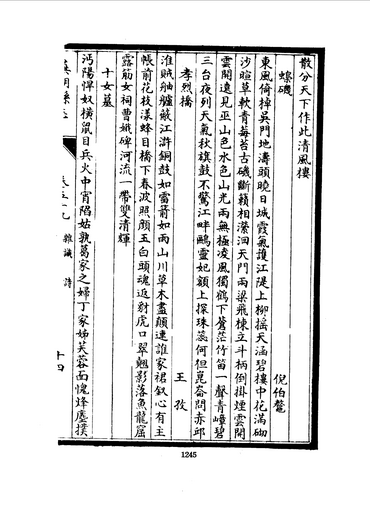 散分天下作此清風樓
蟂磯
倪伯鼇
東風倚棹吳門地濤頭曉日城霞氣護江隄上柳搖天涵碧樓中花滿砌
沙暄草軟青莓苔古磯斷籟相瀠洄天門兩梁飛棟立斗柄倒掛煙雲開
雲開遠見巫山色水色山光兩無極凌風獨鶴下蒼茫竹笛一聲青嶂碧
三台夜列天氣秋旗鼓不驚江畔鷗靈妃額上探珠蕊何但崑崙問赤邱
孝烈橋
王孜
淮賊舳艫蔽江滸銅鼓如雷箭如雨山川草木盡顛連誰家裙釵心有主
帳前花枝漾蜂目橋下春波照顏玉白頭魂返豺虎口翠翹影落魚龍窟
露筋女祠曹娥碑河流一帶雙清輝
十女墓
沔陽悍奴橫鼠目兵火中宵陷姑孰葛家之婦丁家娣芙蓉面愧烽塵撲
卷五十九
雜識
詩
十四
1245